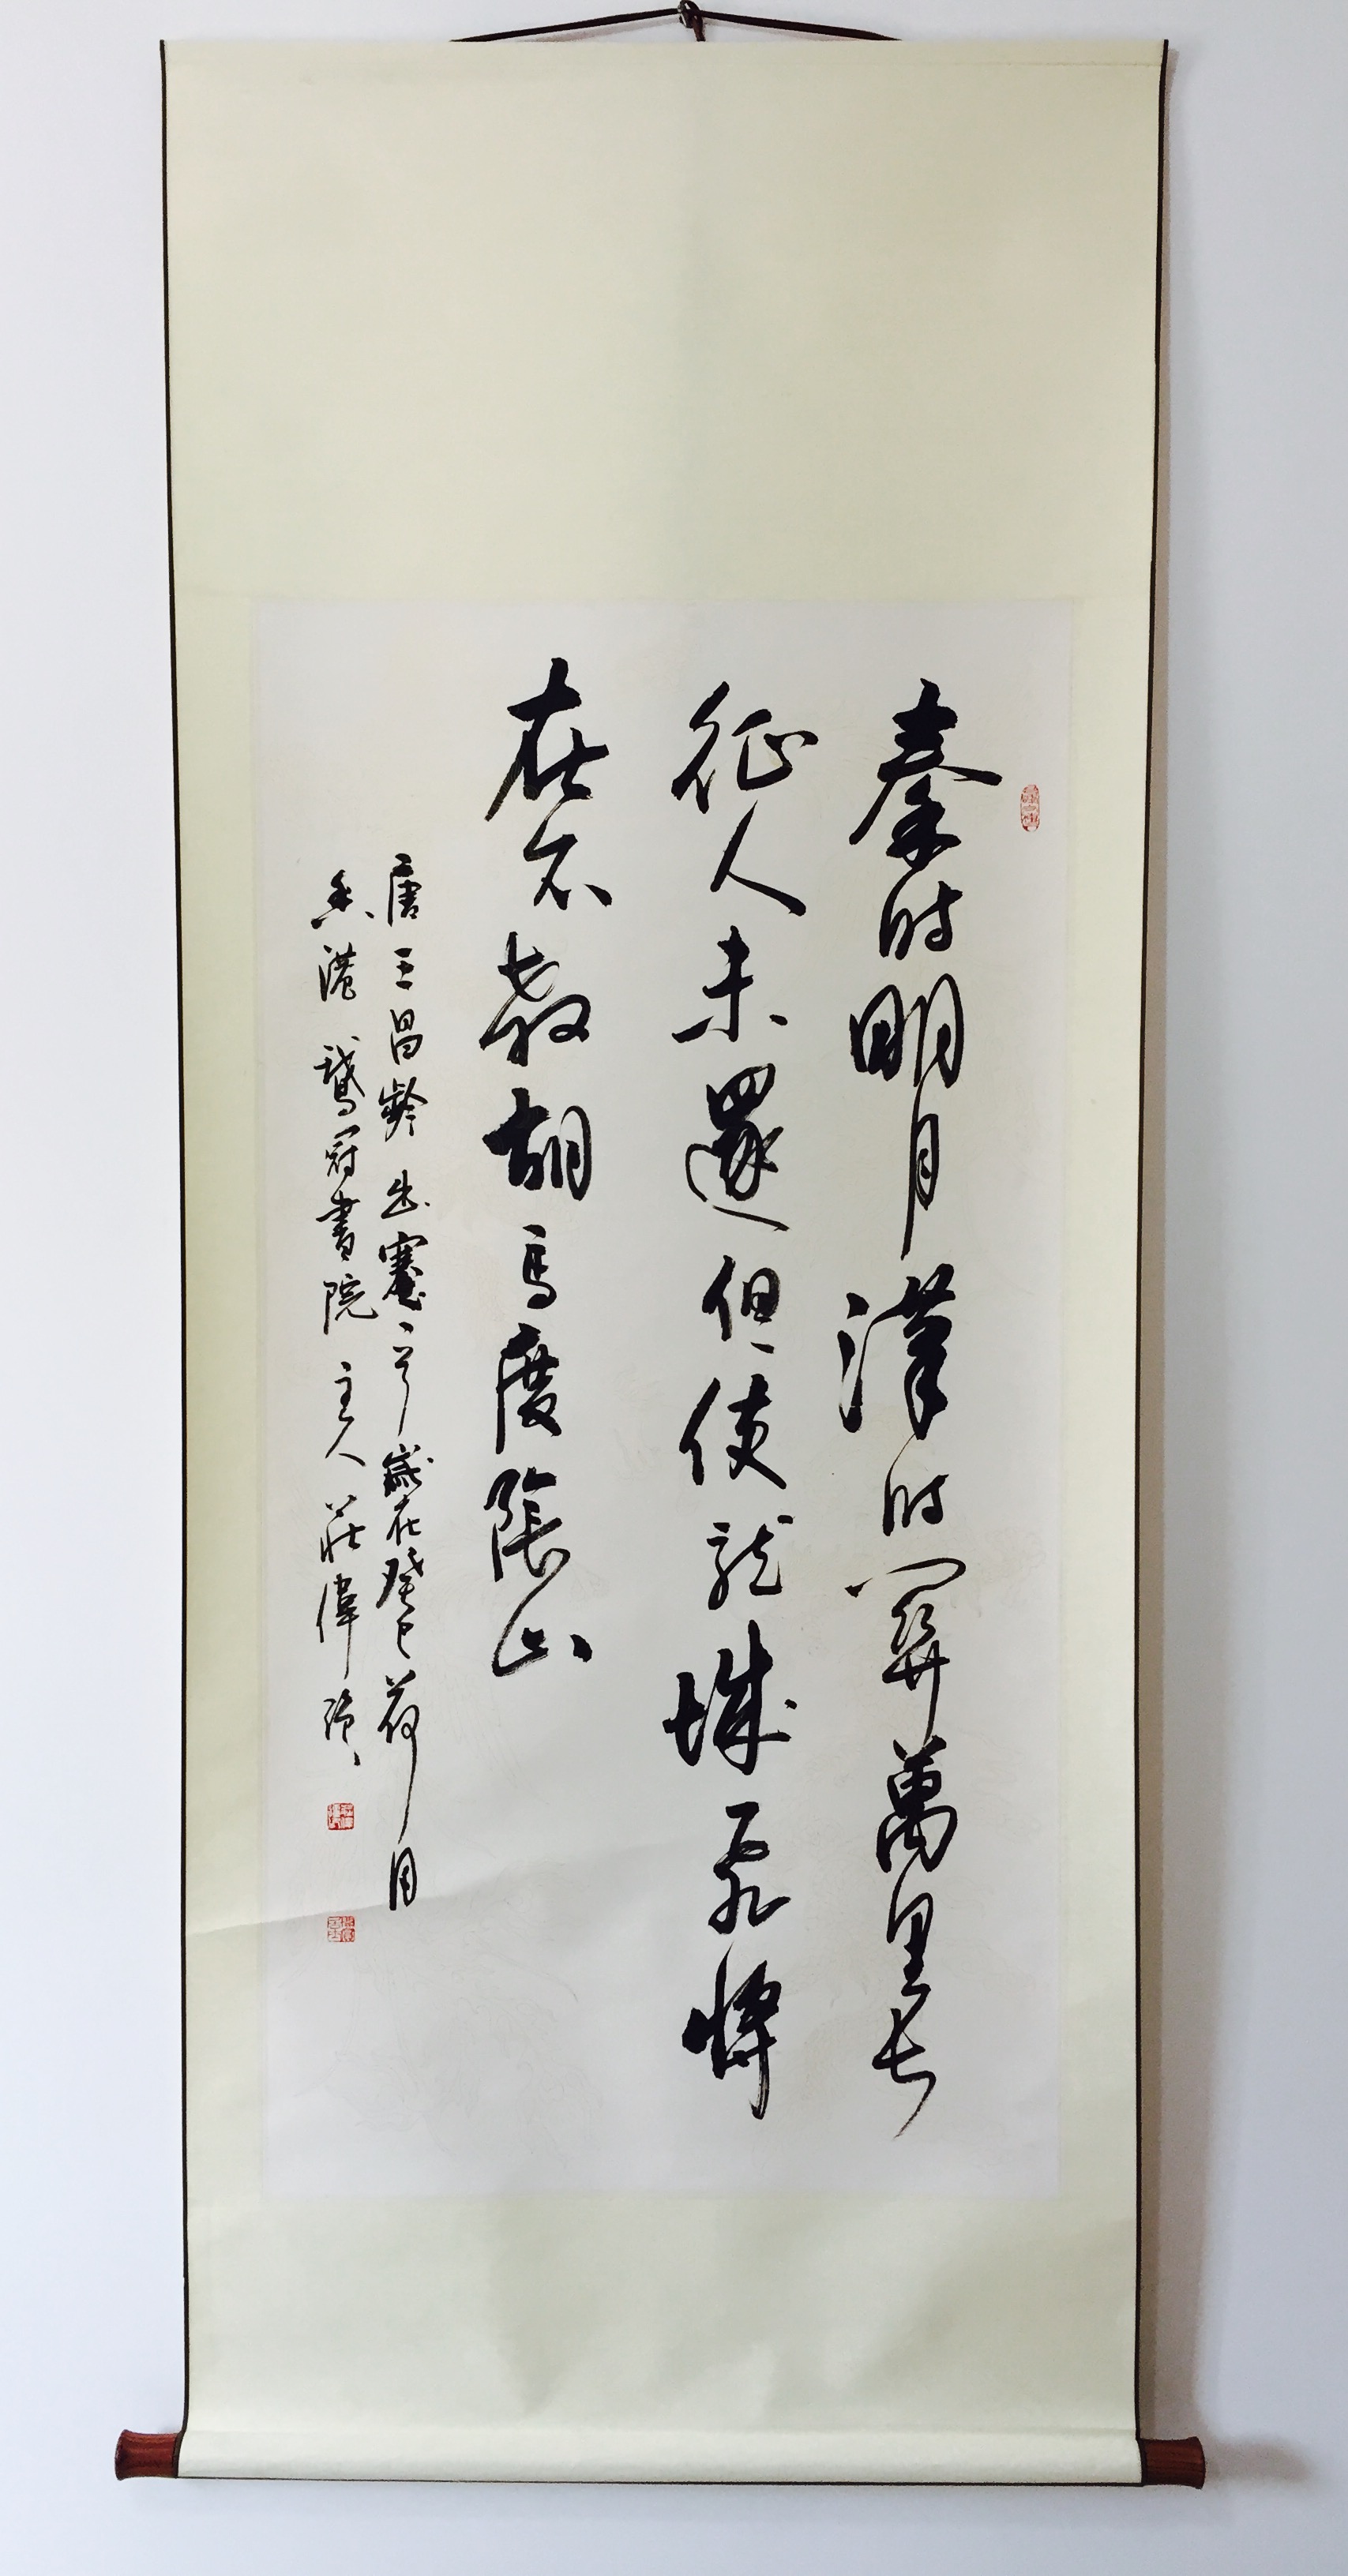 秦时明月漢时関萬里長
征人未還但使龍城飛將
在不教胡馬度陰山
唐王昌齡出塞一首歲在癸巳荷月
香港鵝冠書院主人莊偉